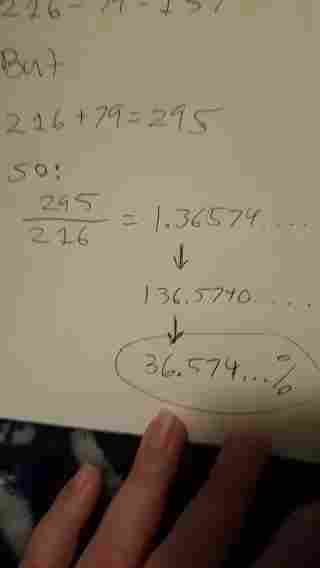 216 - 79 = 137
But
216 + 79 = 295
so:
295
216
= 1.36574....
↓
136.5740....
↓
36.574...%